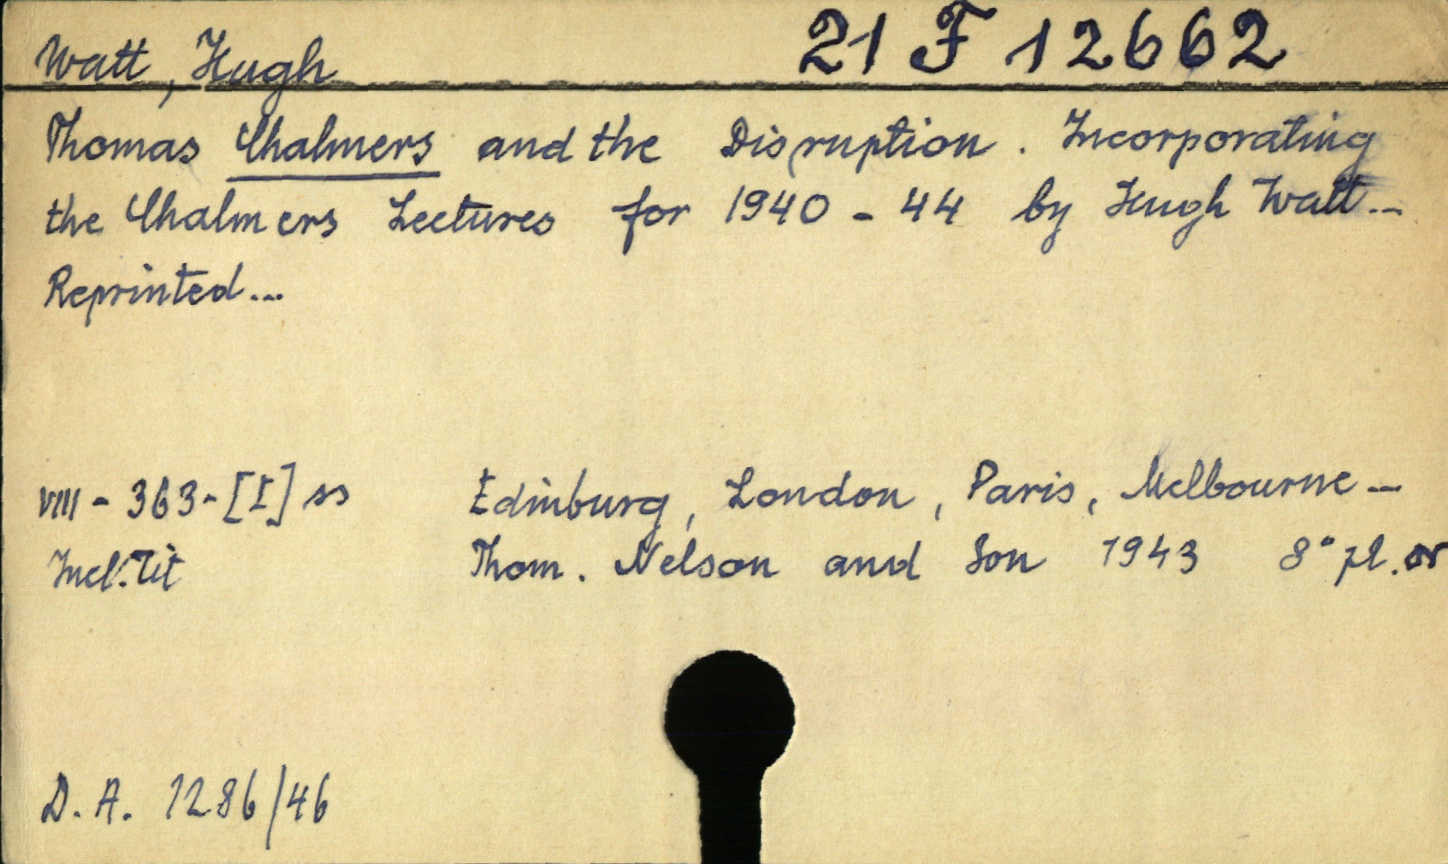 Watt, Hugh
21 F 12662
Thomas Chalmers and the Disruption. Incorporating
the Chalmers Lectures for 1940-44 by Hugh Watt...
Reprinted...
VIII-363-[I] ss
Edinburg, London, Paris, Melbourne...
Incl. Tit
Thom. Nelson and Son 1943 8° pl. or
D. A. 1286/46